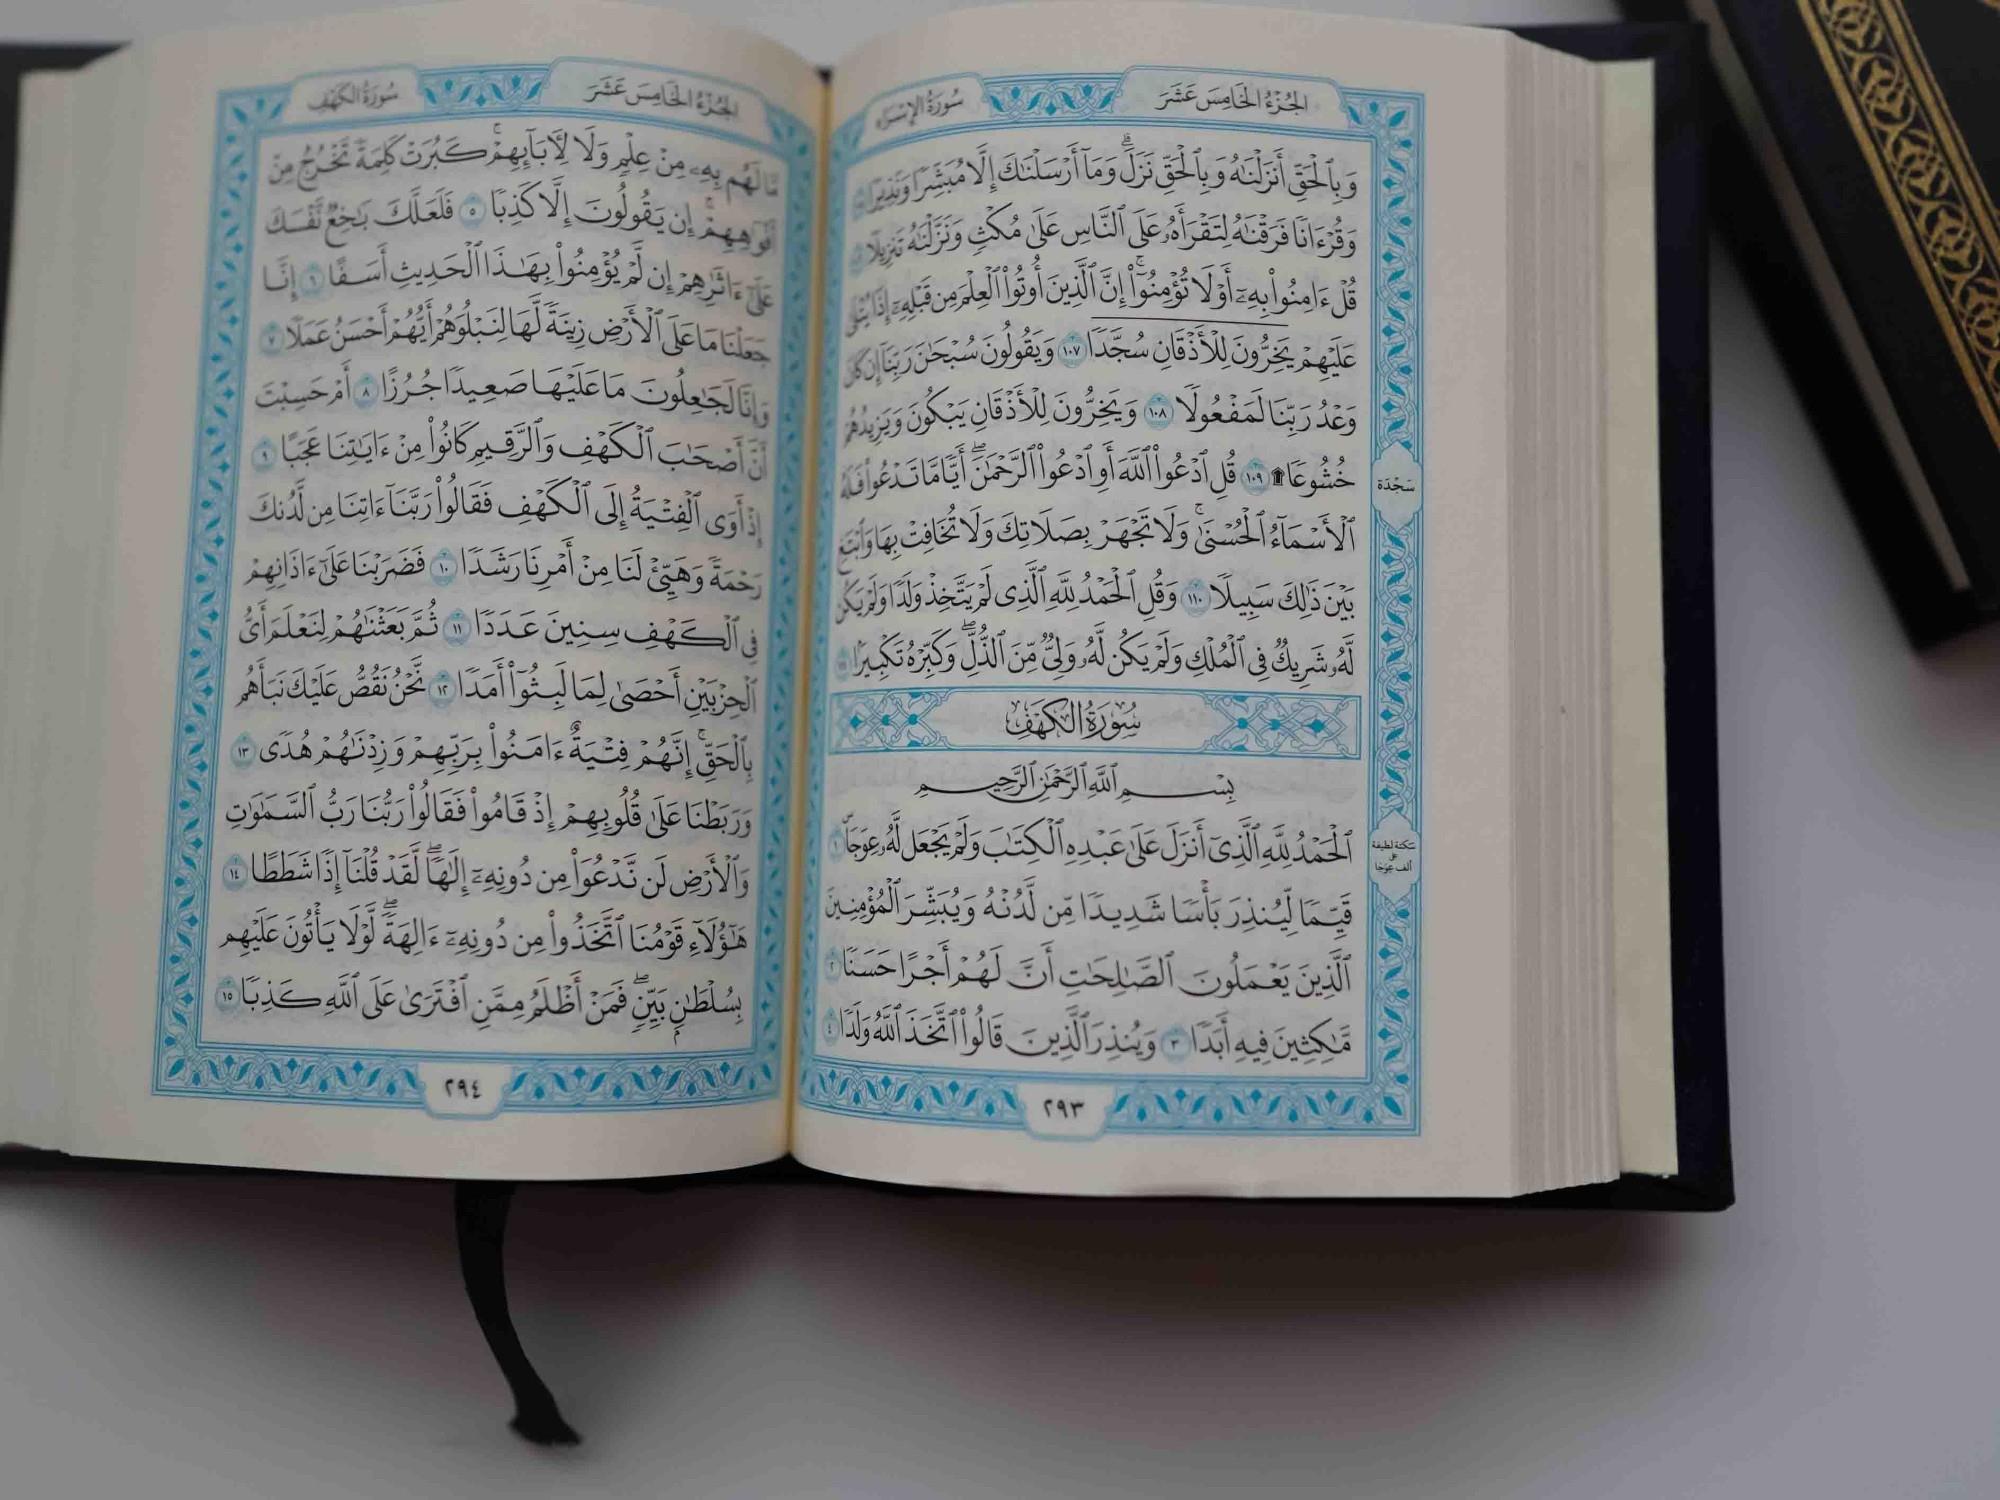 الجُزْءُ الخَامِسَ عَشَرَ سُورَةُ الإِسْرَاءِ
وَبِٱلْحَقِّ أَنزَلْنَٰهُ وَبِٱلْحَقِّ نَزَلَ ۗ وَمَآ أَرْسَلْنَٰكَ إِلَّا مُبَشِّرًا وَنَذِيرًا ١٠٥
وَقُرْءَانًا فَرَقْنَٰهُ لِتَقْرَأَهُۥ عَلَى ٱلنَّاسِ عَلَىٰ مُكْثٍ وَنَزَّلْنَٰهُ تَنزِيلًا ١٠٦
قُلْ ءَامِنُوا۟ بِهِۦٓ أَوْ لَا تُؤْمِنُوٓا۟ ۚ إِنَّ ٱلَّذِينَ أُوتُوا۟ ٱلْعِلْمَ مِن قَبْلِهِۦٓ إِذَا يُتْلَىٰ
عَلَيْهِمْ يَخِرُّونَ لِلْأَذْقَانِ سُجَّدًا ١٠٧ وَيَقُولُونَ سُبْحَٰنَ رَبِّنَآ إِن كَانَ
وَعْدُ رَبِّنَا لَمَفْعُولًا ١٠٨ وَيَخِرُّونَ لِلْأَذْقَانِ يَبْكُونَ وَيَزِيدُهُمْ
خُشُوعًا ۩ ١٠٩ قُلِ ٱدْعُوا۟ ٱللَّهَ أَوِ ٱدْعُوا۟ ٱلرَّحْمَٰنَ ۖ أَيًّا مَّا تَدْعُوا۟ فَلَهُ
سَجْدَة
ٱلْأَسْمَآءُ ٱلْحُسْنَىٰ ۚ وَلَا تَجْهَرْ بِصَلَاتِكَ وَلَا تُخَافِتْ بِهَا وَٱبْتَغِ
بَيْنَ ذَٰلِكَ سَبِيلًا ١١٠ وَقُلِ ٱلْحَمْدُ لِلَّهِ ٱلَّذِى لَمْ يَتَّخِذْ وَلَدًا وَلَمْ يَكُن
لَّهُۥ شَرِيكٌ فِى ٱلْمُلْكِ وَلَمْ يَكُن لَّهُۥ وَلِىٌّ مِّنَ ٱلذُّلِّ ۖ وَكَبِّرْهُ تَكْبِيرًۢا ١١١
سُورَةُ الكَهْفِ
بِسْمِ ٱللَّهِ ٱلرَّحْمَٰنِ ٱلرَّحِيمِ
ٱلْحَمْدُ لِلَّهِ ٱلَّذِىٓ أَنزَلَ عَلَىٰ عَبْدِهِ ٱلْكِتَٰبَ وَلَمْ يَجْعَل لَّهُۥ عِوَجَا ۜ ١
سكتة لطيفة
على
ألف عِوَجَا
قَيِّمًا لِّيُنذِرَ بَأْسًا شَدِيدًا مِّن لَّدُنْهُ وَيُبَشِّرَ ٱلْمُؤْمِنِينَ
ٱلَّذِينَ يَعْمَلُونَ ٱلصَّٰلِحَٰتِ أَنَّ لَهُمْ أَجْرًا حَسَنًا ٢
مَّٰكِثِينَ فِيهِ أَبَدًا ٣ وَيُنذِرَ ٱلَّذِينَ قَالُوا۟ ٱتَّخَذَ ٱللَّهُ وَلَدًا ٤
٢٩٣
الجُزْءُ الخَامِسَ عَشَرَ سُورَةُ الكَهْفِ
مَّا لَهُم بِهِۦ مِنْ عِلْمٍ وَلَا لِـَٔابَآئِهِمْ ۚ كَبُرَتْ كَلِمَةً تَخْرُجُ مِنْ
أَفْوَٰهِهِمْ ۚ إِن يَقُولُونَ إِلَّا كَذِبًا ٥ فَلَعَلَّكَ بَٰخِعٌ نَّفْسَكَ
عَلَىٰٓ ءَاثَٰرِهِمْ إِن لَّمْ يُؤْمِنُوا۟ بِهَٰذَا ٱلْحَدِيثِ أَسَفًا ٦ إِنَّا
جَعَلْنَا مَا عَلَى ٱلْأَرْضِ زِينَةً لَّهَا لِنَبْلُوَهُمْ أَيُّهُمْ أَحْسَنُ عَمَلًا ٧
وَإِنَّا لَجَٰعِلُونَ مَا عَلَيْهَا صَعِيدًا جُرُزًا ٨ أَمْ حَسِبْتَ
أَنَّ أَصْحَٰبَ ٱلْكَهْفِ وَٱلرَّقِيمِ كَانُوا۟ مِنْ ءَايَٰتِنَا عَجَبًا ٩
إِذْ أَوَى ٱلْفِتْيَةُ إِلَى ٱلْكَهْفِ فَقَالُوا۟ رَبَّنَآ ءَاتِنَا مِن لَّدُنكَ
رَحْمَةً وَهَيِّئْ لَنَا مِنْ أَمْرِنَا رَشَدًا ١٠ فَضَرَبْنَا عَلَىٰٓ ءَاذَانِهِمْ
فِى ٱلْكَهْفِ سِنِينَ عَدَدًا ١١ ثُمَّ بَعَثْنَٰهُمْ لِنَعْلَمَ أَىُّ
ٱلْحِزْبَيْنِ أَحْصَىٰ لِمَا لَبِثُوٓا۟ أَمَدًا ١٢ نَّحْنُ نَقُصُّ عَلَيْكَ نَبَأَهُم
بِٱلْحَقِّ ۚ إِنَّهُمْ فِتْيَةٌ ءَامَنُوا۟ بِرَبِّهِمْ وَزِدْنَٰهُمْ هُدًى ١٣
وَرَبَطْنَا عَلَىٰ قُلُوبِهِمْ إِذْ قَامُوا۟ فَقَالُوا۟ رَبُّنَا رَبُّ ٱلسَّمَٰوَٰتِ
وَٱلْأَرْضِ لَن نَّدْعُوَا۟ مِن دُونِهِۦٓ إِلَٰهًا ۖ لَّقَدْ قُلْنَآ إِذًا شَطَطًا ١٤
هَٰٓؤُلَآءِ قَوْمُنَا ٱتَّخَذُوا۟ مِن دُونِهِۦٓ ءَالِهَةً ۖ لَّوْلَا يَأْتُونَ عَلَيْهِم
بِسُلْطَٰنٍۭ بَيِّنٍ ۖ فَمَنْ أَظْلَمُ مِمَّنِ ٱفْتَرَىٰ عَلَى ٱللَّهِ كَذِبًا ١٥
٢٩٤